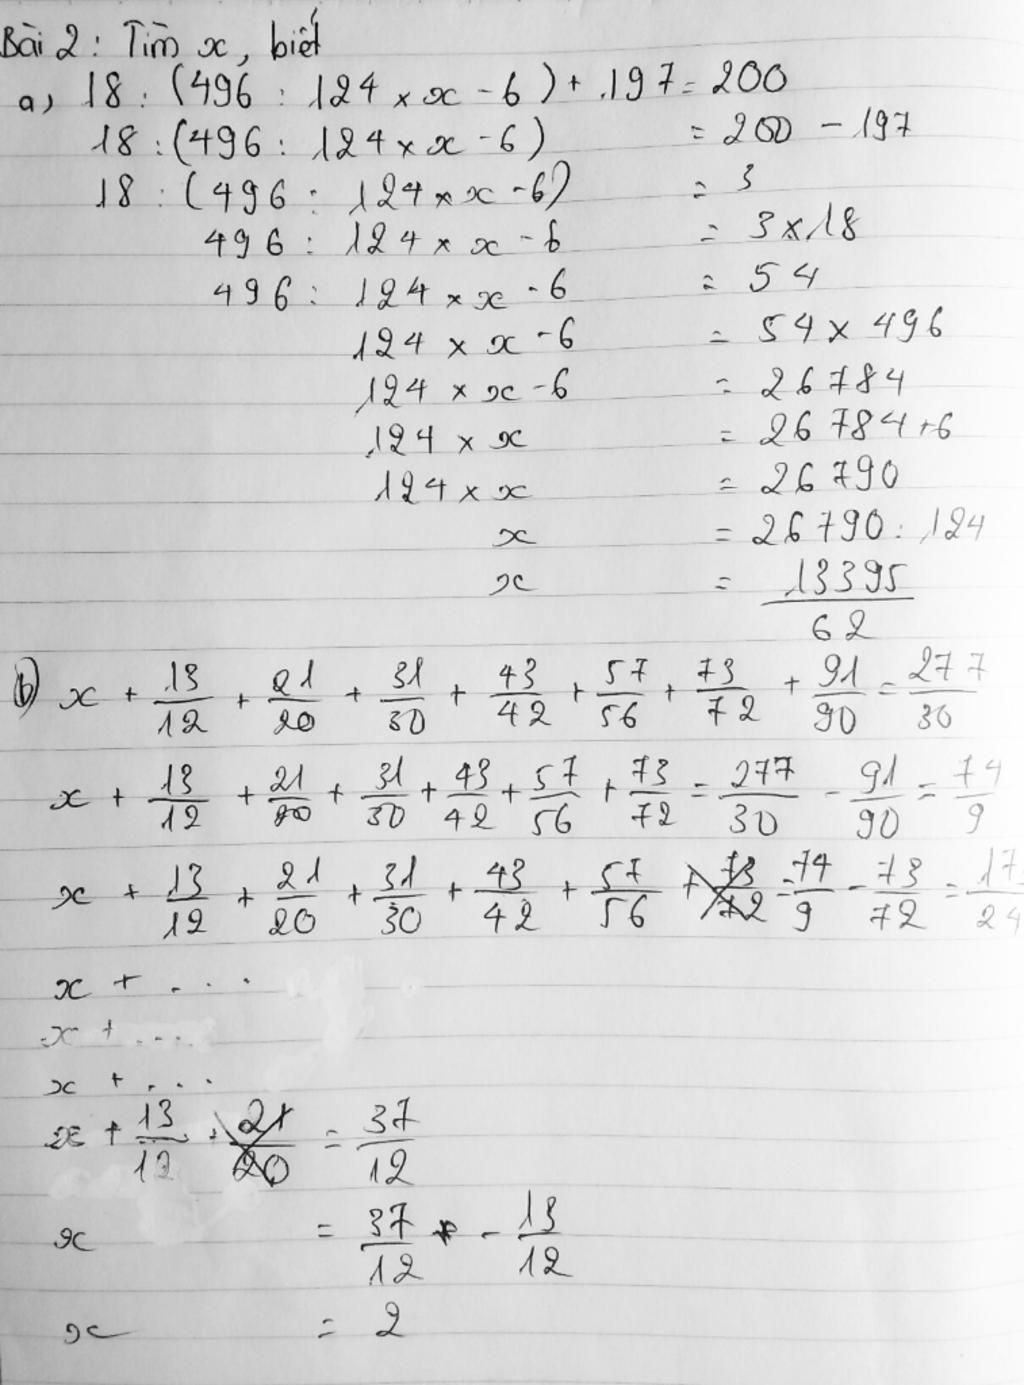 Bài 2: Tìm x, biết
a, 18 : (496 : 124 × x - 6) + 197 = 200
18 : (496 : 124 × x - 6) = 200 - 197
18 : (496 : 124 × x - 6) = 3
496 : 124 × x - 6 = 3 × 18
496 : 124 × x - 6 = 54
124 × x - 6 = 54 × 496
124 × x - 6 = 26784
124 × x = 26784 + 6
124 × x = 26790
x = 26790 : 124
x = 13395/62
b) x + 13/12 + 21/20 + 31/30 + 43/42 + 57/56 + 73/72 + 91/90 = 277/30
x + 13/12 + 21/20 + 31/30 + 43/42 + 57/56 + 73/72 = 277/30 - 91/90 = 74/9
x + 13/12 + 21/20 + 31/30 + 43/42 + 57/56 + 73/72 = 74/9 - 73/72 = 17/24
x + ...
x + ...
x + ...
x + 13/12 + 21/20 = 37/12
x = 37/12 - 13/12
x = 2